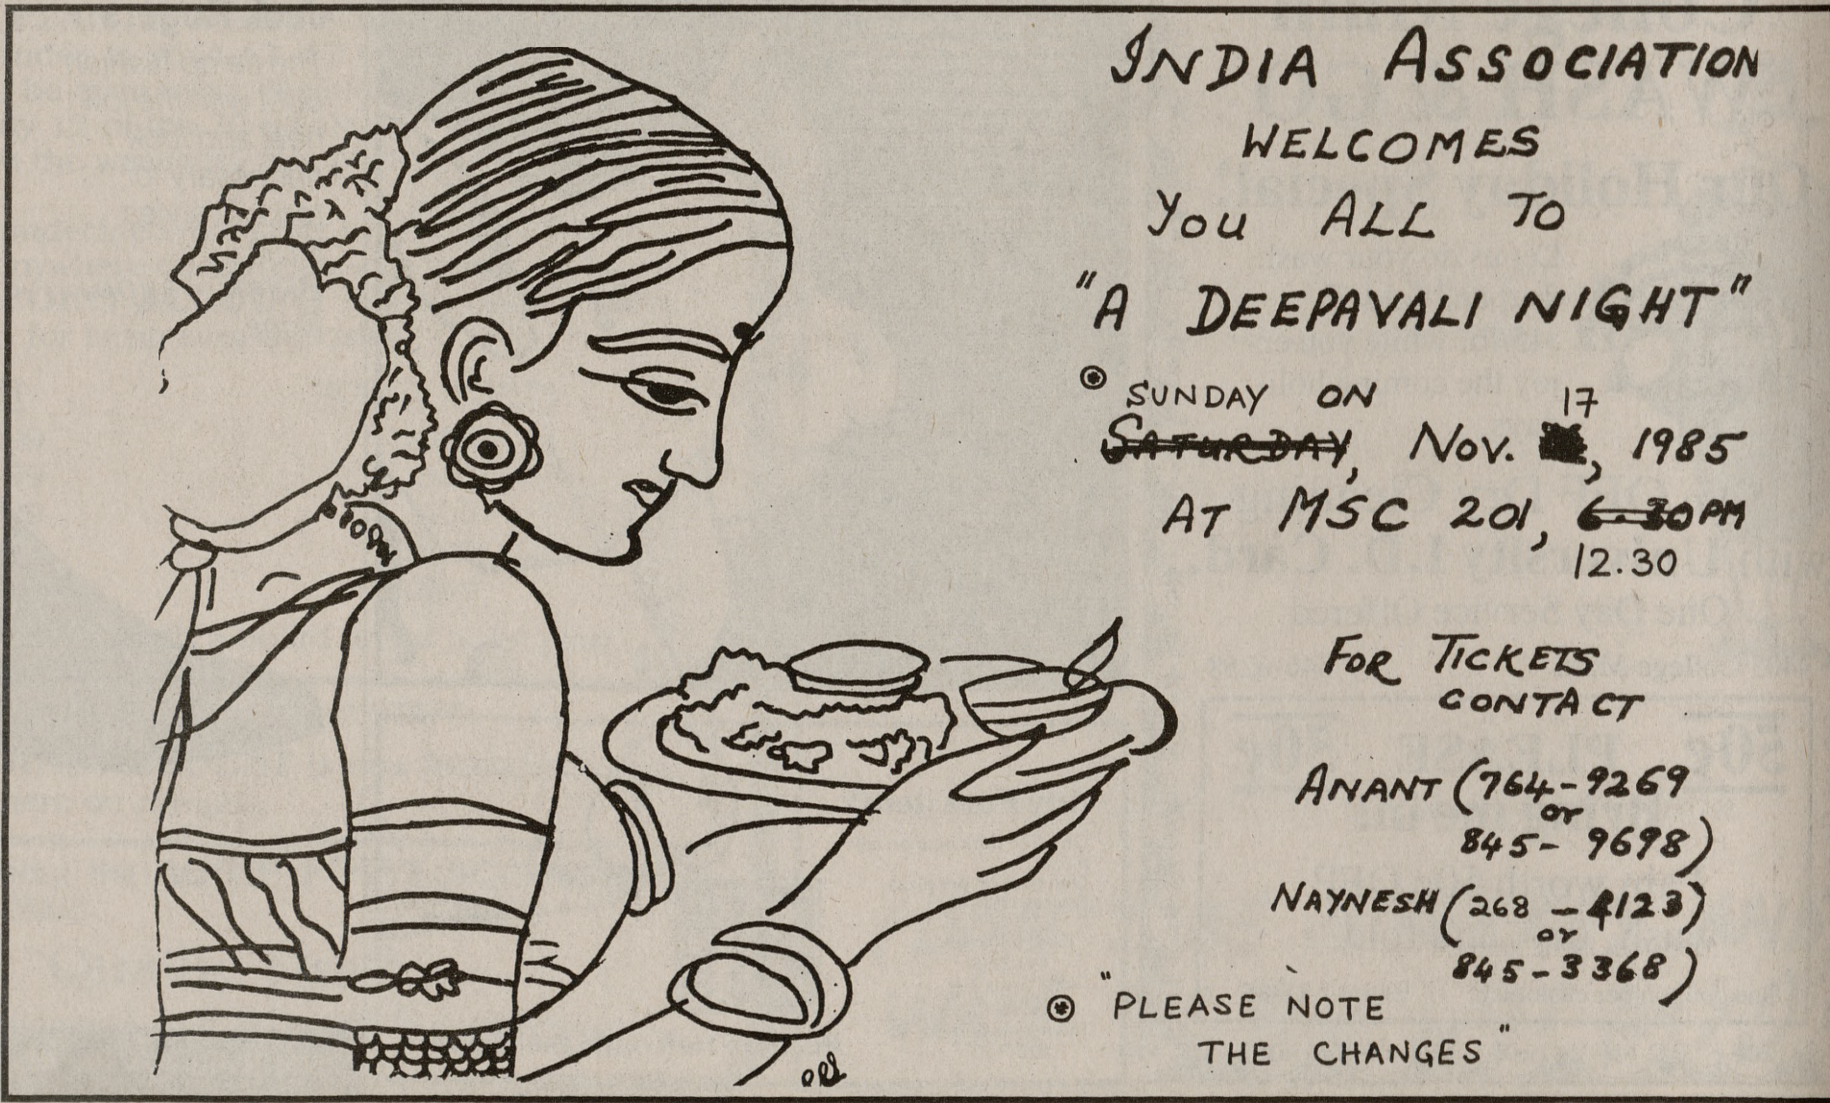 INDIA ASSOCIATION
WELCOMES
You ALL TO
"A DEEPAVALI NIGHT"
SUNDAY ON 17
SATURDAY, Nov. , 1985
AT MSC 201, 6.30 PM
12.30
FOR TICKETS
CONTACT
ANANT (764-9269
or
845-9698)
NAYNESH (268-4123)
or
845-3368)
"PLEASE NOTE
THE CHANGES"